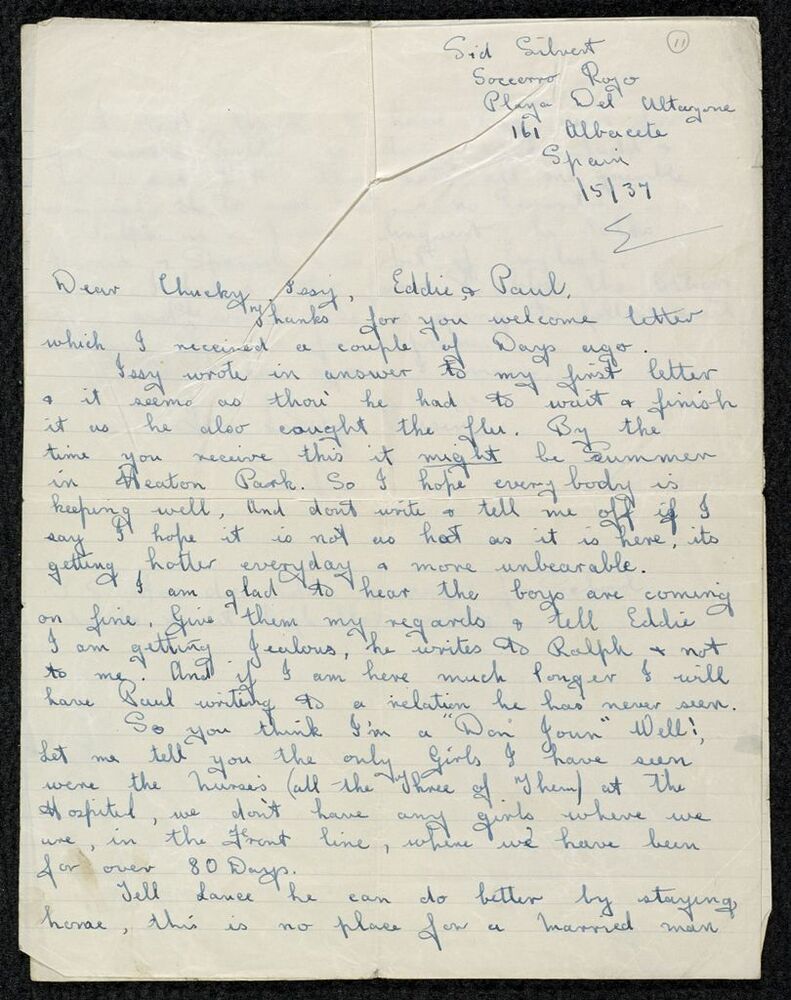 11
Sid Silvert
Soccerro Rojo
Playa Del Altozone
161 Albacete
Spain
1/5/37
Dear Chucky, Issy, Eddie & Paul,
Thanks for you welcome letter
which I received a couple of Days ago.
Issy wrote in answer to my first letter
& it seems as thou' he had to wait & finish
it as he also caught the flu. By the
time you receive this it might be Summer
in Heaton Park. So I hope every body is
keeping well, And dont write & tell me off if I
say I hope it is not as hot as it is here, its
getting hotter everyday & more unbearable.
I am glad to hear the boys are coming
on fine, Give them my regards & tell Eddie
I am getting Jealous, he writes to Ralph & not
to me. And if I am here much longer I will
have Paul writing to a relation he has never seen.
So you think I'm a "Don Joun" Well!,
Let me tell you the only Girls I have seen
were the Nurses (all the Three of Them) at the
Hospital, we don't have any girls where we
are, in the Front line, where we have been
for over 80 Days.
Tell Lance he can do better by staying
home, this is no place for a married man